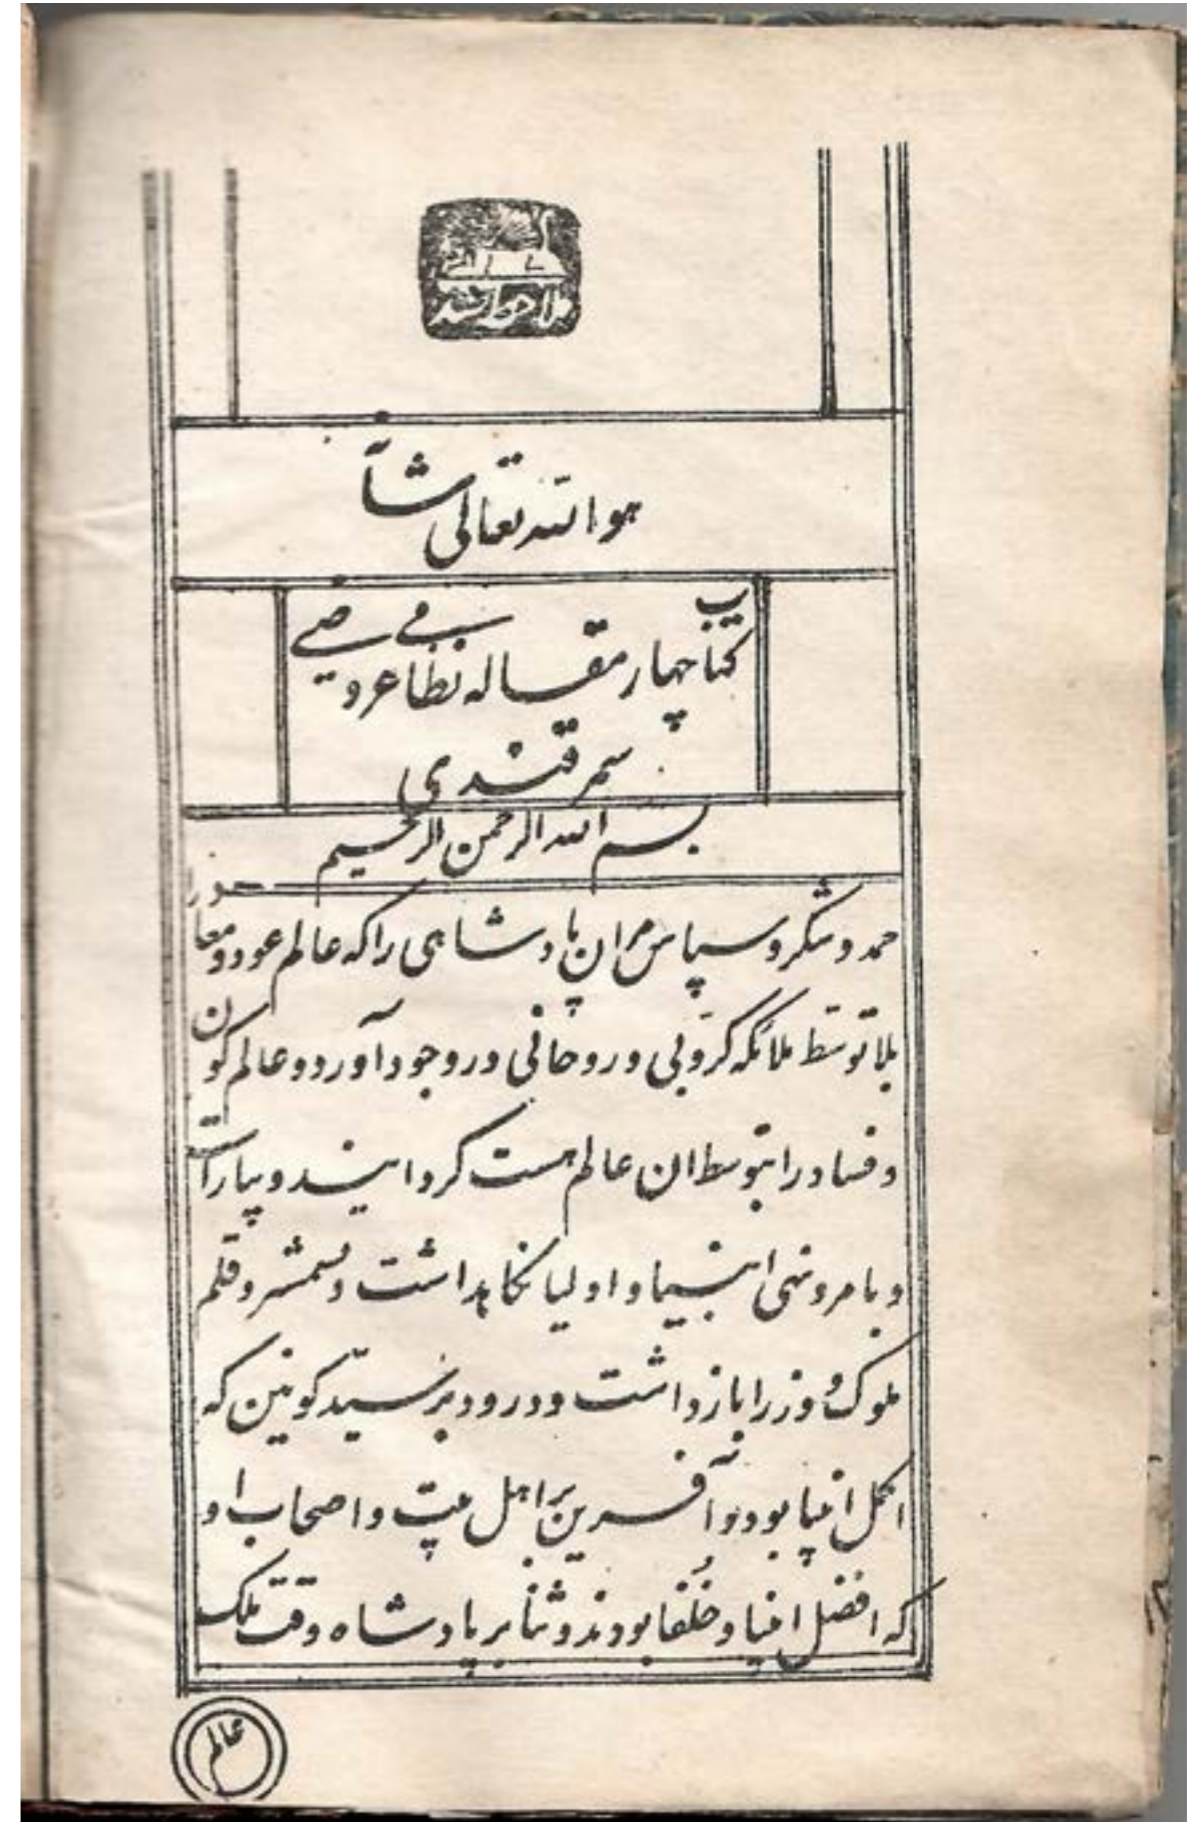 ملاحظه شد
هو الله تعالی شأنه
کتاب چهار مقاله نظامی عروضی
سمرقندی
بسم الله الرحمن الرحیم
حمد و شکر و سپاس مر ان پادشاهی را که عالم عود و معاد را
بلا توسط ملائکه کروبی و روحانی در وجود آورد و عالم کون
و فساد را بتوسط ان عالم هست کردانید و بیاراست
و بامر و نهی انبیا و اولیا نکاهداشت و بشمشیر و قلم
ملوک و وزرا باز داشت و درود بر سید کونین که
اکمل انبیا بود و آفرین بر اهل بیت و اصحاب او
که افضل اغنیا و خلفا بودند و ثنا بر پادشاه وقت ملک
عالم